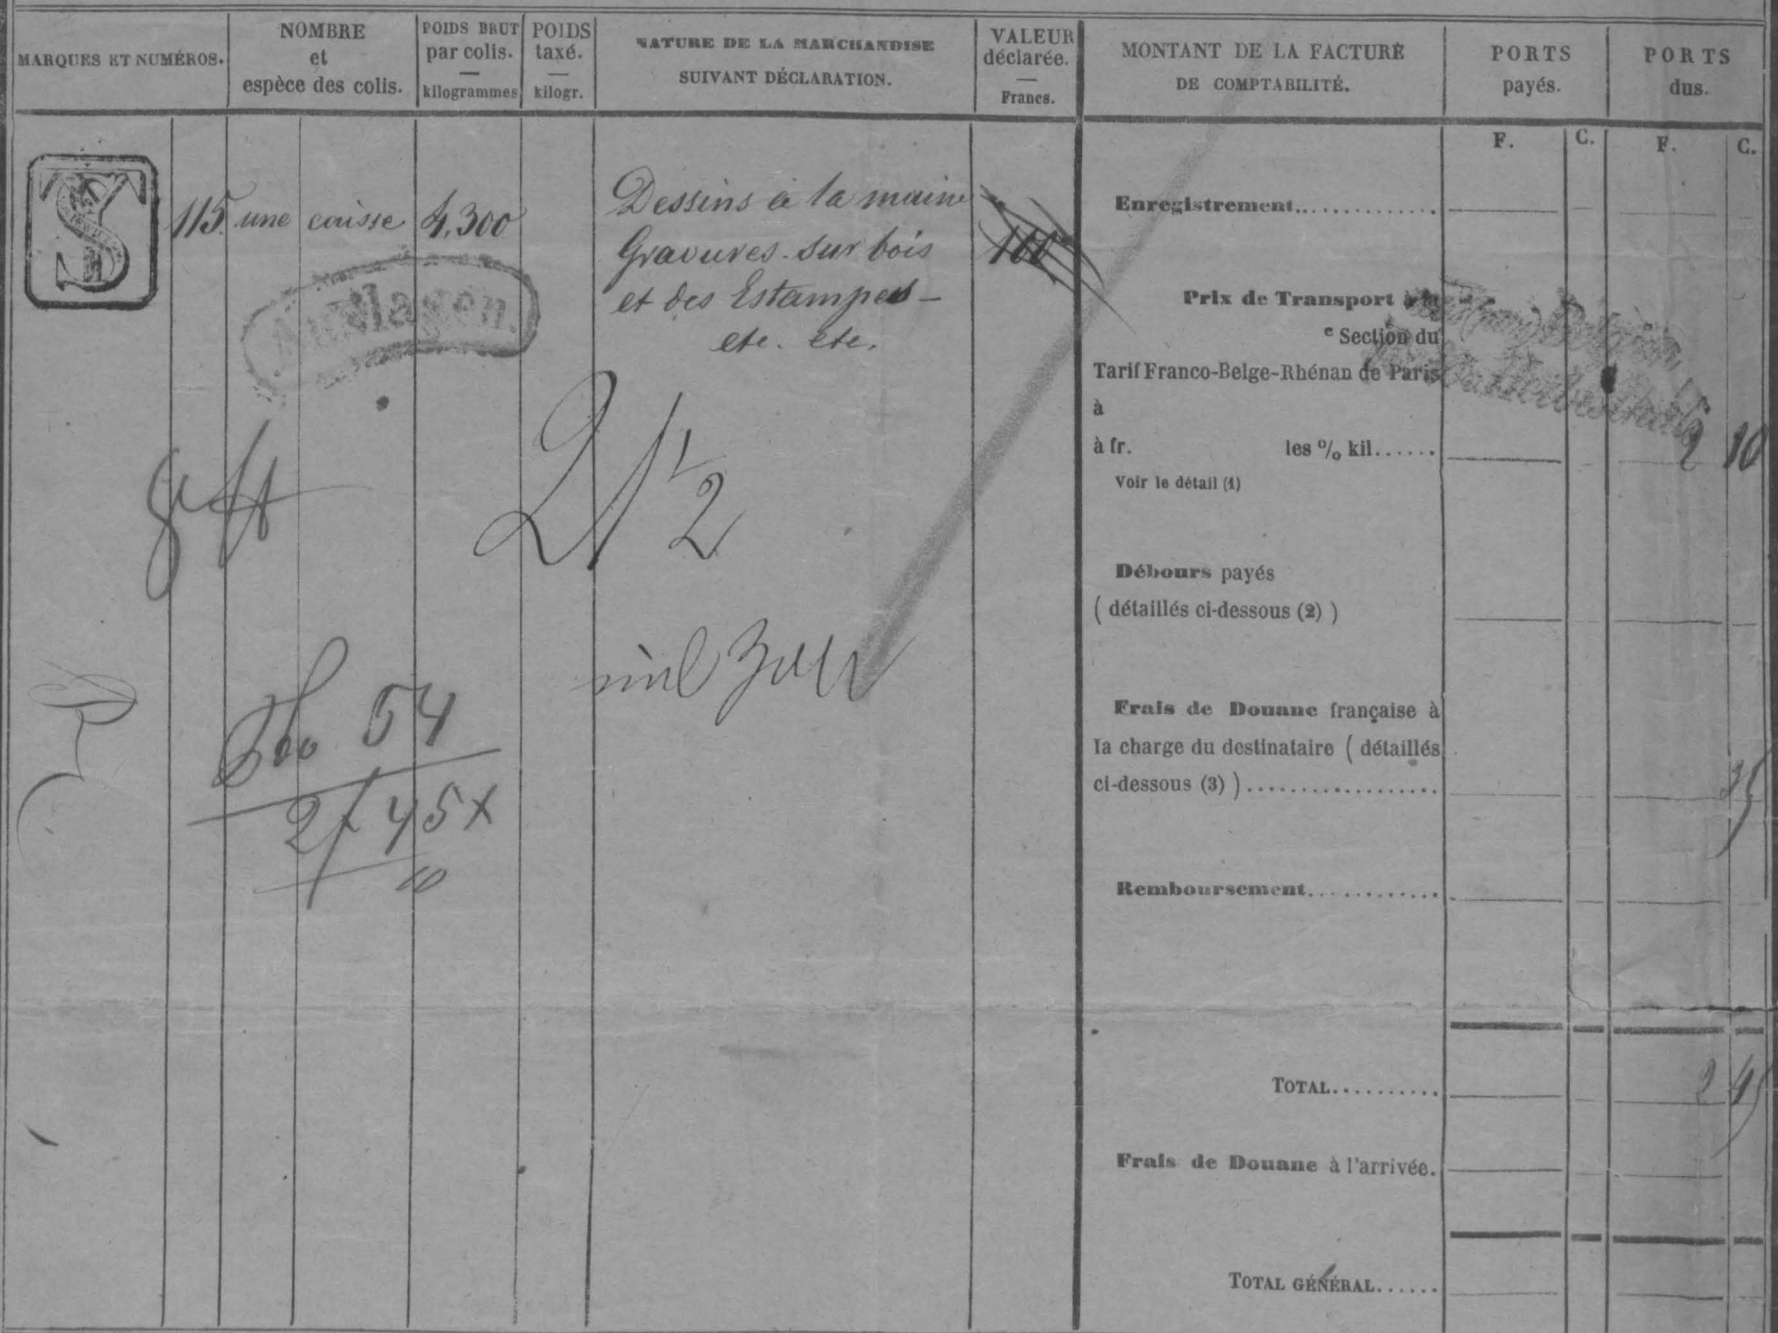 MARQUES ET NUMÉROS.
NOMBRE
et
espèce des colis.
POIDS BRUT
par colis.
kilogrammes
POIDS
taxé.
kilogr.
NATURE DE LA MARCHANDISE
SUIVANT DÉCLARATION.
VALEUR
déclarée.
Francs.
MONTANT DE LA FACTURE
DE COMPTABILITÉ.
PORTS
payés.
PORTS
dus.
F. C. F. C.
115 une caisse 4,300
Dessins à la main
Gravures sur bois
et des Estampes –
etc. etc.
100
Enregistrement.............
Prix de Transport à la
e Section du
Tarif Franco-Belge-Rhénan de Paris
à
à fr. les % kil...... 2 10
Voir le détail (1)
2 1/2
Débours payés
( détaillés ci-dessous (2) )
54
2 f 45 x
Frais de Douane française à
la charge du destinataire ( détaillés
ci-dessous (3) ).................. 35
Remboursement............
TOTAL.......... 2 45
Frais de Douane à l'arrivée.
TOTAL GÉNÉRAL......